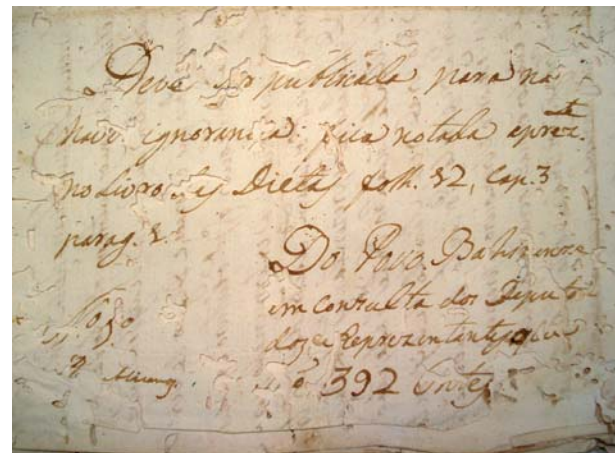 Deve ser publicada para na
haver ignorancia: fica notada aprez.te
no Livro das Dietas folh. 82, Cap. 3
parag. 2.
Do Povo Bahiense
em consulta dos Deputa
dos e Reprezentantes
392 Entes